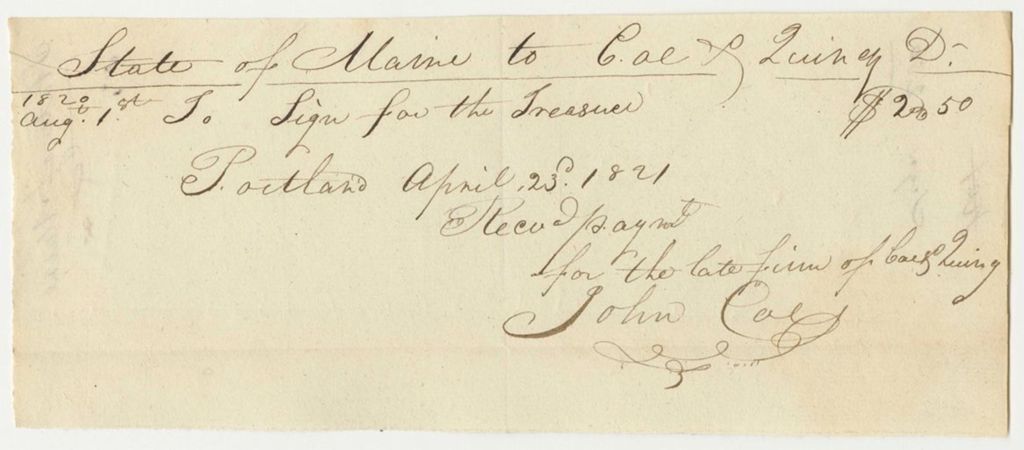 State of Maine to Coe & Quincy Dr
1820
Augt 1st To Sign for the Treasurer $2.50
Portland April 23d. 1821
Recvd paymt
for the late firm of Coe & Quincy
John Coe